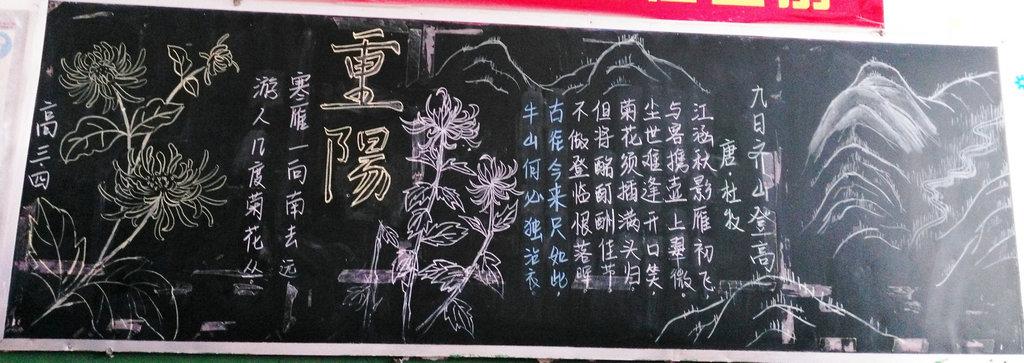 九日齐山登高
唐·杜牧
江涵秋影雁初飞,
与客携壶上翠微。
尘世难逢开口笑,
菊花须插满头归。
但将酩酊酬佳节,
不做登临恨落晖。
古往今来只如此,
牛山何必独沾衣。
重陽
寒雁一向南去远
游人几度菊花丛
高三四